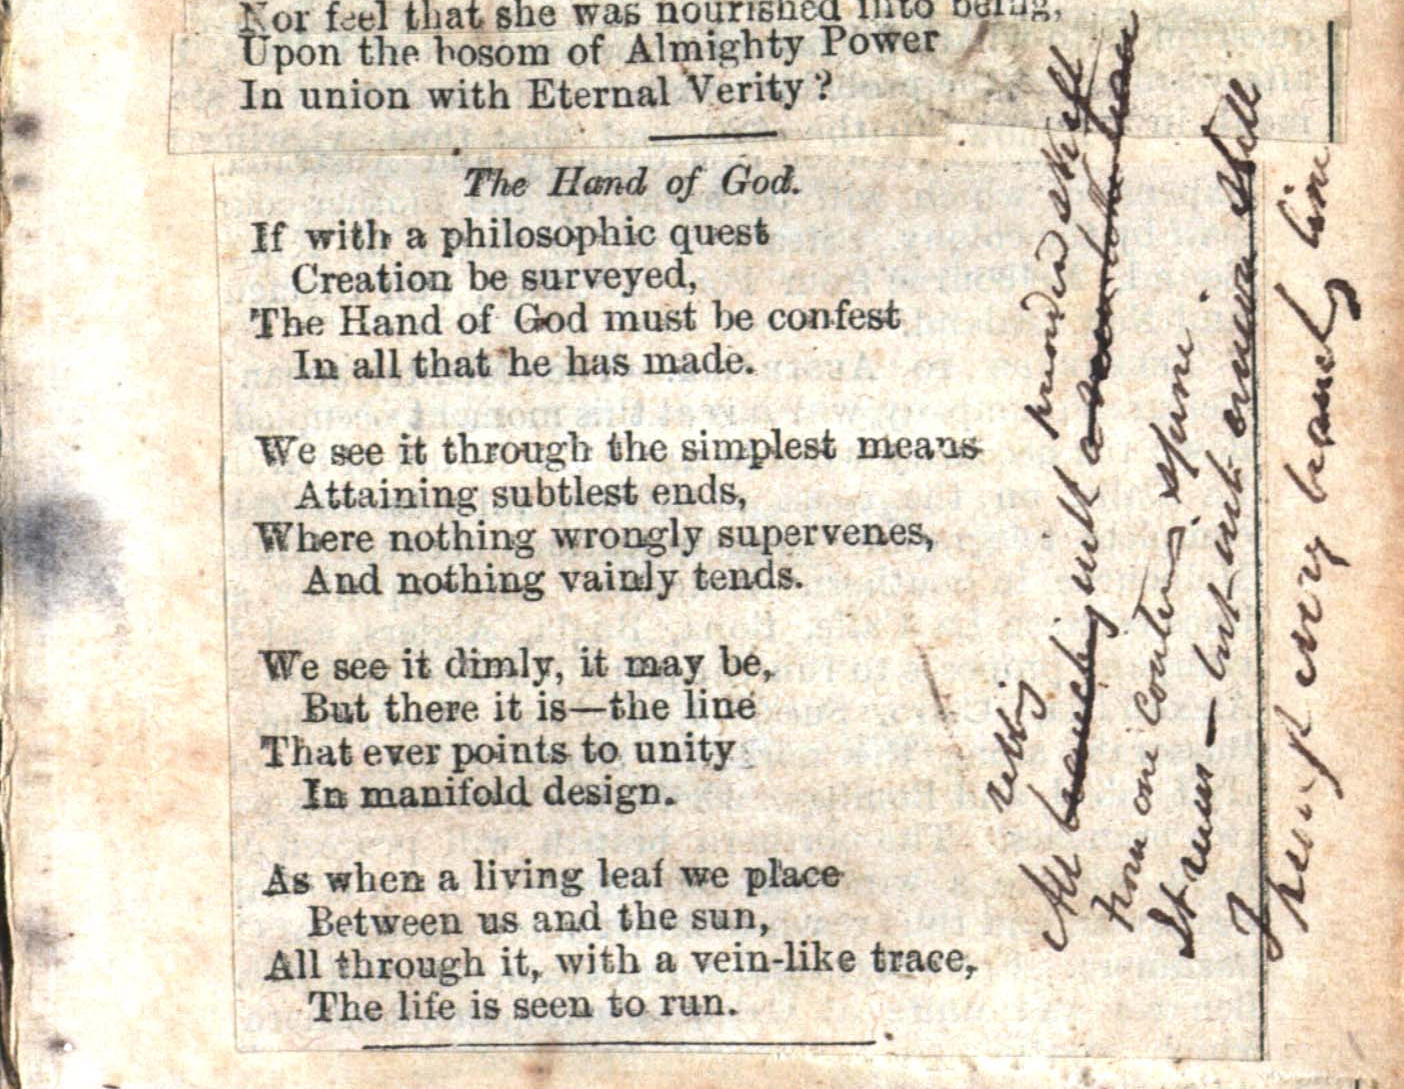 Nor feel that she was nourished into being,
Upon the bosom of Almighty Power
In union with Eternal Verity?
The Hand of God.
If with a philosophic quest
Creation be surveyed,
The Hand of God must be confest
In all that he has made.
We see it through the simplest means
Attaining subtlest ends,
Where nothing wrongly supervenes,
And nothing vainly tends.
We see it dimly, it may be,
But there it is—the line
That ever points to unity
In manifold design.
As when a living leaf we place
Between us and the sun,
All through it, with a vein-like trace,
The life is seen to run.
skill
with a
From one spine.
but still
every line